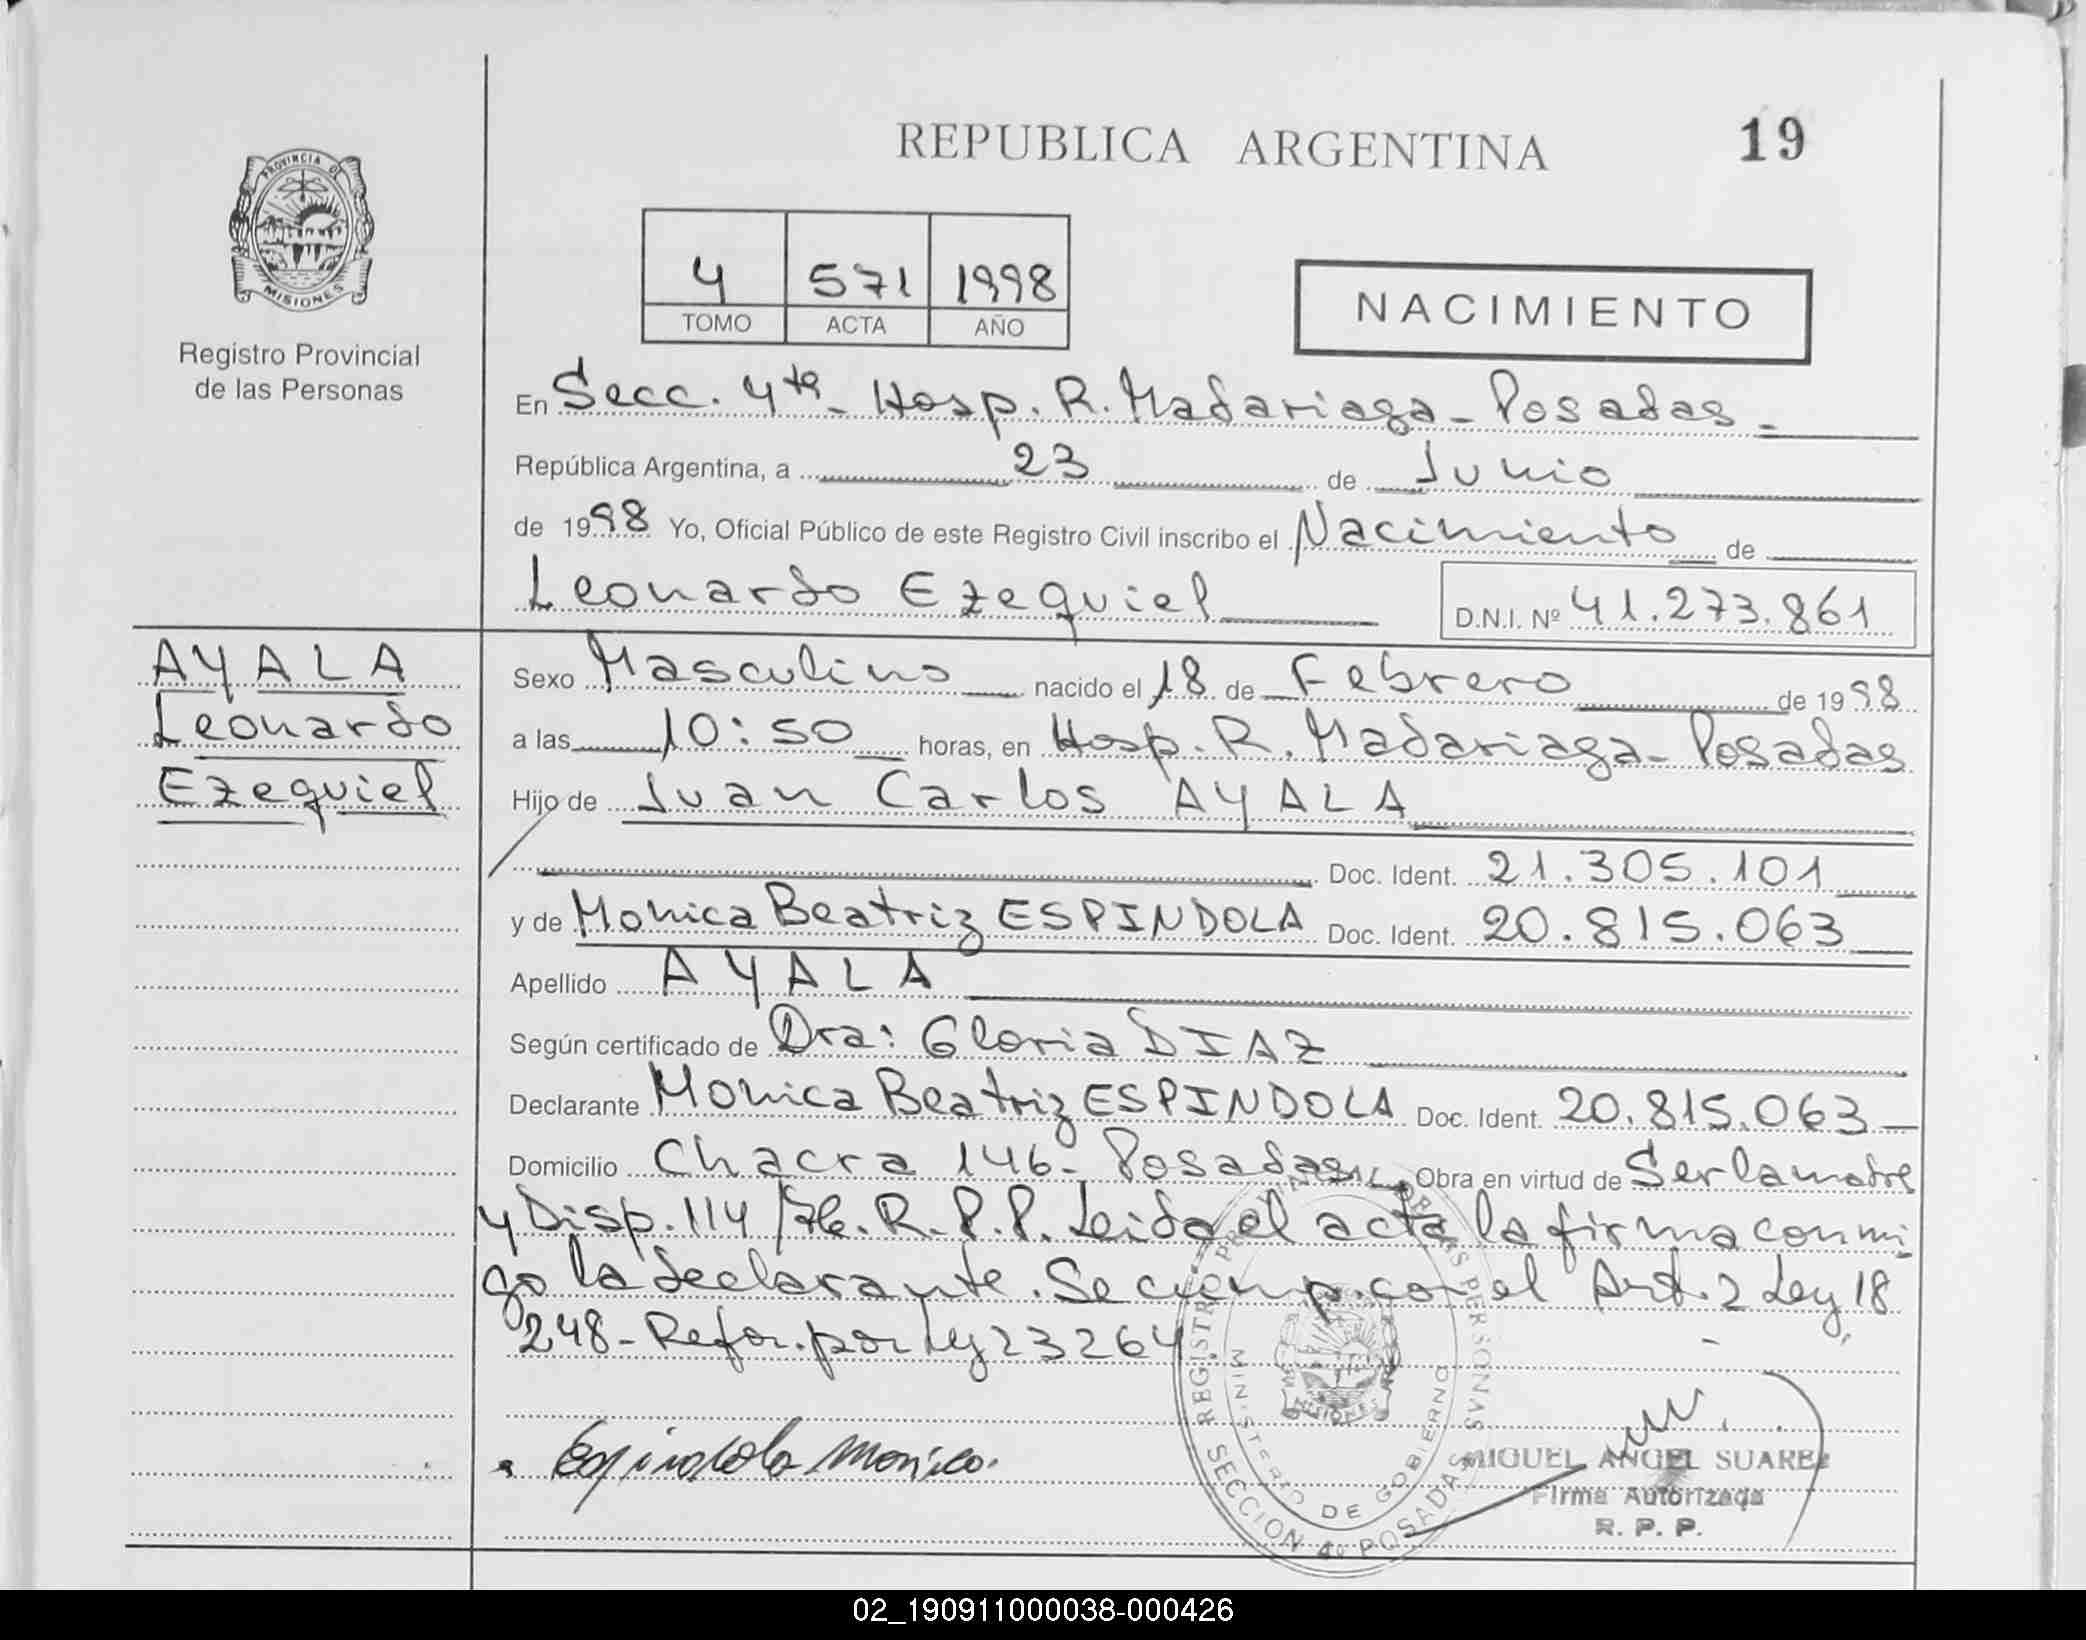 REPUBLICA ARGENTINA
19
PROVINCIA DE
MISIONES
Registro Provincial
de las Personas
4 571 1998
TOMO ACTA AÑO
NACIMIENTO
En Secc. 4ta - Hosp. R. Madariaga - Posadas -
República Argentina, a 23 de Junio
de 1998 Yo, Oficial Público de este Registro Civil inscribo el Nacimiento de
Leonardo Ezequiel D.N.I. Nº 41.273.861
AYALA
Leonardo
Ezequiel
Sexo Masculino nacido el 18 de Febrero de 1998
a las 10:50 horas, en Hosp. R. Madariaga - Posadas
Hijo de Juan Carlos AYALA
Doc. Ident. 21.305.101
y de Monica Beatriz ESPINDOLA Doc. Ident. 20.815.063
Apellido AYALA
Según certificado de Dra: Gloria DIAZ
Declarante Monica Beatriz ESPINDOLA Doc. Ident. 20.815.063
Domicilio Chacra 146 - Posadas Obra en virtud de Ser la madre
y Disp. 114/76. R.P.P. Leida el acta la firma conmi
go la declarante. Se cump. con el Art. 2 Ley 18
248 - Refor. por Ley 23264.
Espindola Monica.
REGISTRO PROVINCIAL DE LAS PERSONAS
MINISTERIO DE GOBIERNO
MISIONES
SECCION 4º POSADAS
MIGUEL ANGEL SUAREZ
Firma Autorizada
R. P. P.
02_190911000038-000426